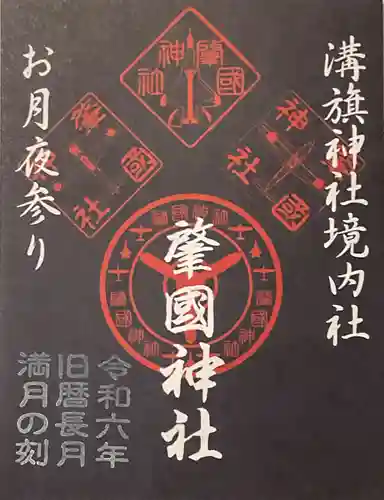 溝旗神社境内社
肇國神社
お月夜参り
令和六年
旧暦長月
満月の刻
肇國神社
肇國神社
肇國神社